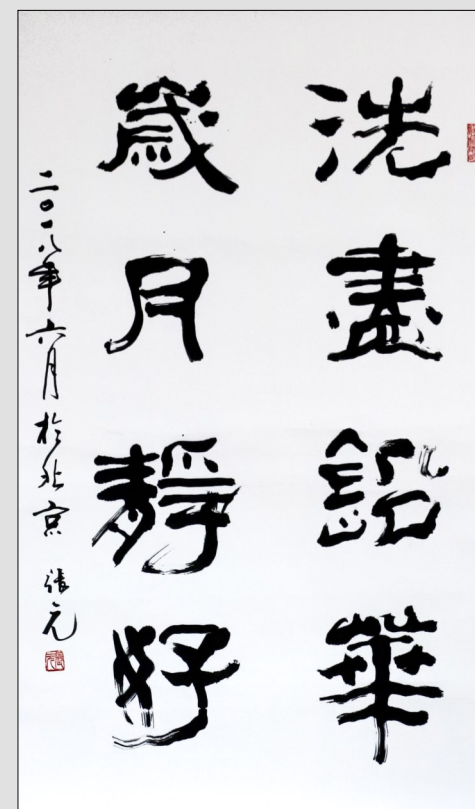 洗盡鉛華
歲月靜好
二〇一八年六月於北京 張元